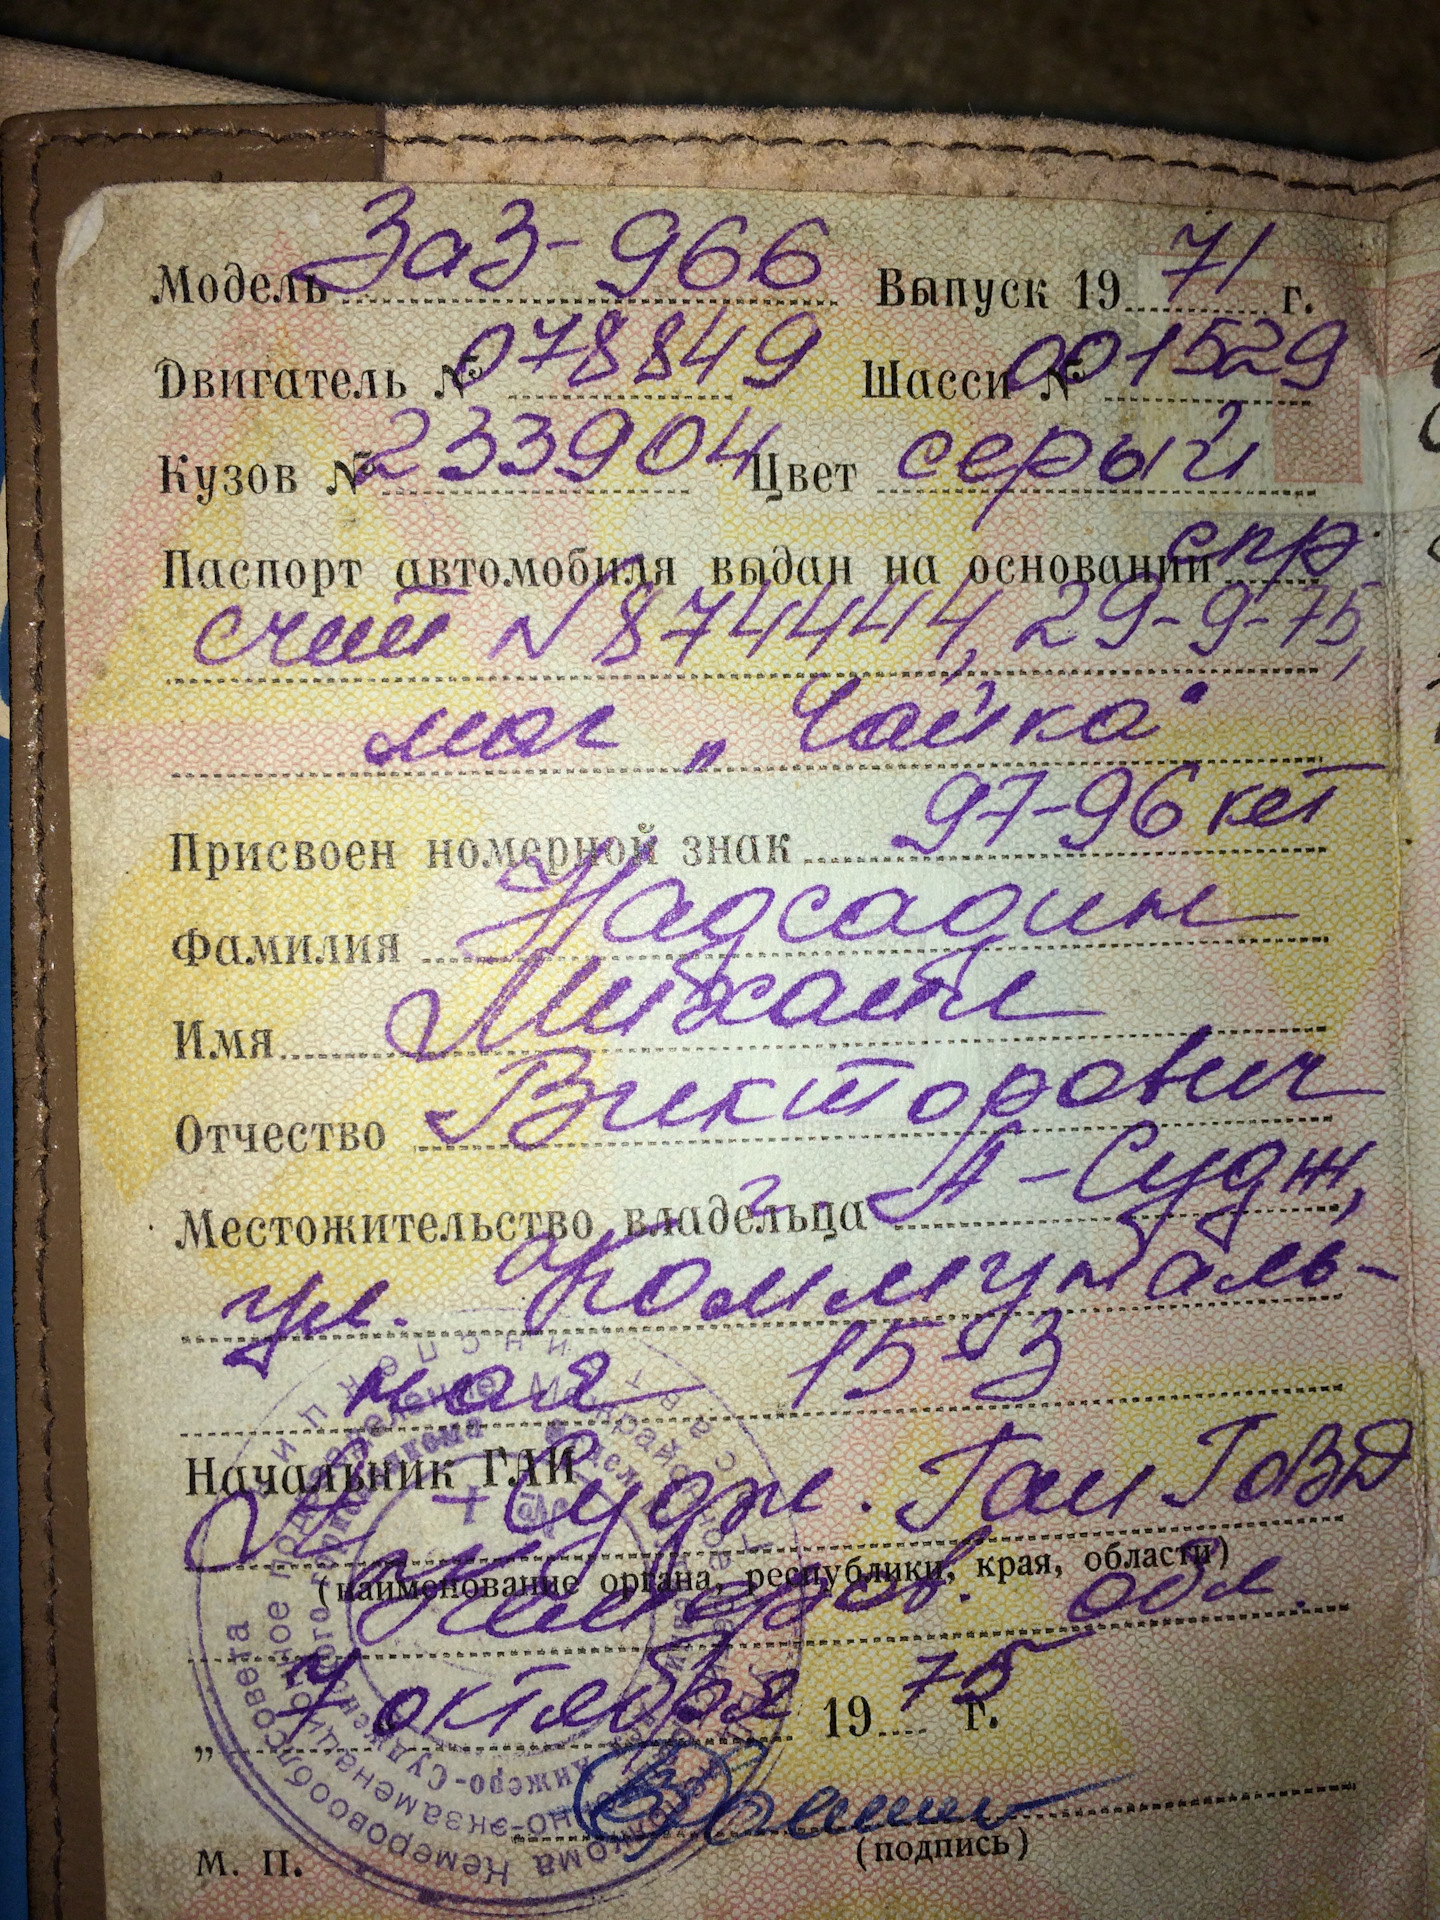 Модель ЗаЗ-966 Выпуск 1971 г.
Двигатель № 078849 Шасси № 001529
Кузов № 233904 Цвет серый
Паспорт автомобиля выдан на основании спр
счет N 874444, 29-9-75,
маг „Чайка"
Присвоен номерной знак 97-96 кет
Фамилия Надсадин
Имя Михаил
Отчество Викторович
Местожительство владельца г. А-Судж,
ул. Коммуналь-
ная 15-3
Начальник ГАИ
А-Судж. Гаи ГОВД
(наименование органа, республики, края, области)
Кемеров. обл.
„ 7 октября 1975 г.
М. П.
(подпись)